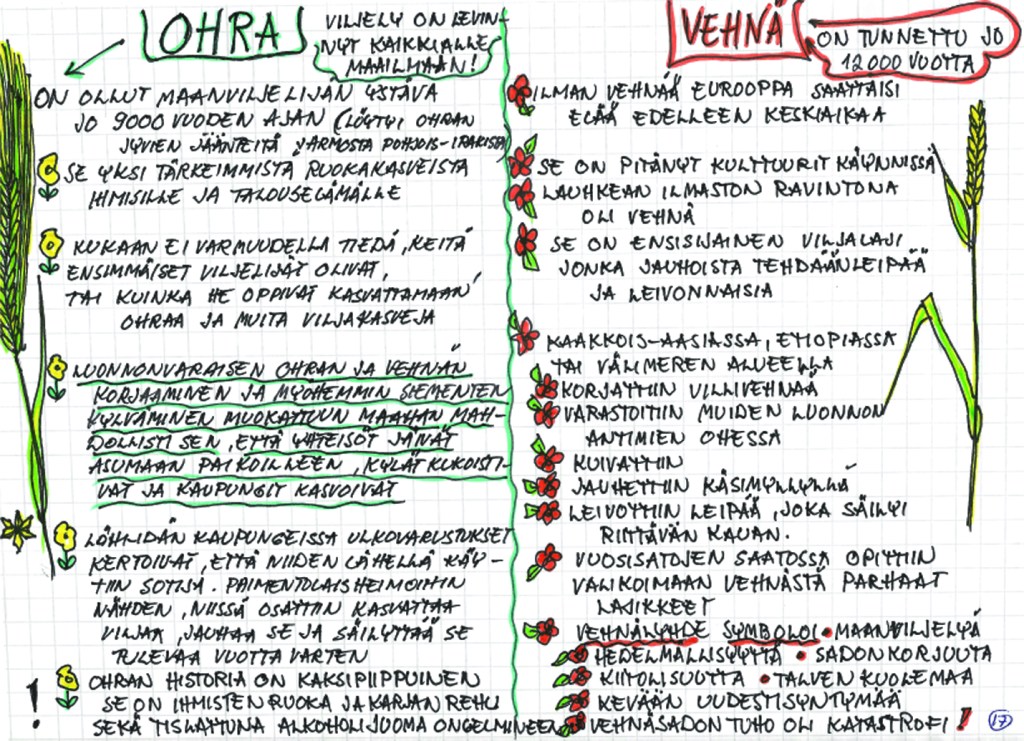 OHRA
VILJELY ON LEVIN-
NYT KAIKKIALLE
MAAILMAAN!
ON OLLUT MAANVILJELIJÄN YSTÄVÄ
JO 9000 VUODEN AJAN (LÖYTYI OHRAN
JYVIEN JÄÄNTEITÄ JARMOSTA POHJOIS-IRAKISTA)
SE YKSI TÄRKEIMMISTÄ RUOKAKASVEISTA
IHMISILLE JA TALOUSELÄMÄLLE
KUKAAN EI VARMUUDELLA TIEDÄ, KEITÄ
ENSIMMÄISET VILJELIJÄT OLIVAT,
TAI KUINKA HE OPPIVAT KASVATTAMAAN
OHRAA JA MUITA VILJAKASVEJA
LUONNONVARAISEN OHRAN JA VEHNÄN
KORJAAMINEN JA MYÖHEMMIN SIEMENTEN
KYLVÄMINEN MUOKATTUUN MAAHAN MAH-
DOLLISTI SEN, ETTÄ YHTEISÖT JÄIVÄT
ASUMAAN PAIKOILLEEN, KYLÄT KUKOISTI-
VAT JA KAUPUNGIT KASVOIVAT
LÖHLIDÄN KAUPUNGEISSA ULKOVARUSTUKSET
KERTOIVAT, ETTÄ NIIDEN LÄHELLÄ KÄY-
TIIN SOTIJA. PAIMENTOLAISHEIMOIHIN
NÄHDEN, NIISSÄ OSATTIIN KASVATTAA
VILJAA, JAUHAA SE JA SÄILYTTÄÄ SE
TULEVAA VUOTTA VARTEN
! OHRAN HISTORIA ON KAKSIPIIPPUINEN
SE ON IHMISTEN RUOKA JA KARJAN REHU
SEKÄ TISLATTUNA ALKOHOLIJUOMA ONGELMINEEN
VEHNÄ
ON TUNNETTU JO
12000 VUOTTA
ILMAN VEHNÄÄ EUROOPPA SAATTAISI
ELÄÄ EDELLEEN KESKIAIKAA
SE ON PITÄNYT KULTTUURIT KÄYNNISSÄ
LAUHKEAN ILMASTON RAVINTONA
OLI VEHNÄ
SE ON ENSISIJAINEN VILJALAJI
JONKA JAUHOISTA TEHDÄÄN LEIPÄÄ
JA LEIVONNAISIA
KAAKKOIS-AASIASSA, ETIOPIASSA
TAI VÄLIMEREN ALUEELLA
KORJATTIIN VILLIVEHNÄÄ
VARASTOITIIN MUIDEN LUONNON
ANTIMIEN OHESSA
KUIVATTIIN
JAUHETTIIN KÄSIMYLLYLLÄ
LEIVOTTIIN LEIPÄÄ, JOKA SÄILYI
RIITTÄVÄN KAUAN.
VUOSISATOJEN SAATOSSA OPITTIIN
VALIKOIMAAN VEHNÄSTÄ PARHAAT
LAJIKKEET
VEHNÄLYHDE SYMBOLOI • MAANVILJELYÄ
HEDELMÄLLISYYTTÄ • SADONKORJUUTA
KIITOLISUUTTA • TALVEN KUOLEMAA
KEVÄÄN UUDESTISYNTYMÄÄ
VEHNÄSADON TUHO OLI KATASTROFI!
17